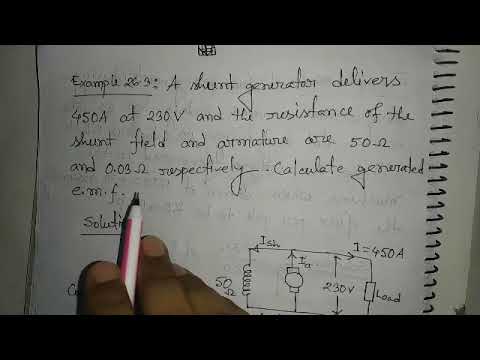 Example 26.3: A shunt generator delivers
450A at 230V and the resistance of the
shunt field and armature are 50Ω
and 0.03Ω respectively. Calculate generated
e.m.f.
Ish
I = 450A
Ia
50
Ω
230V
Load